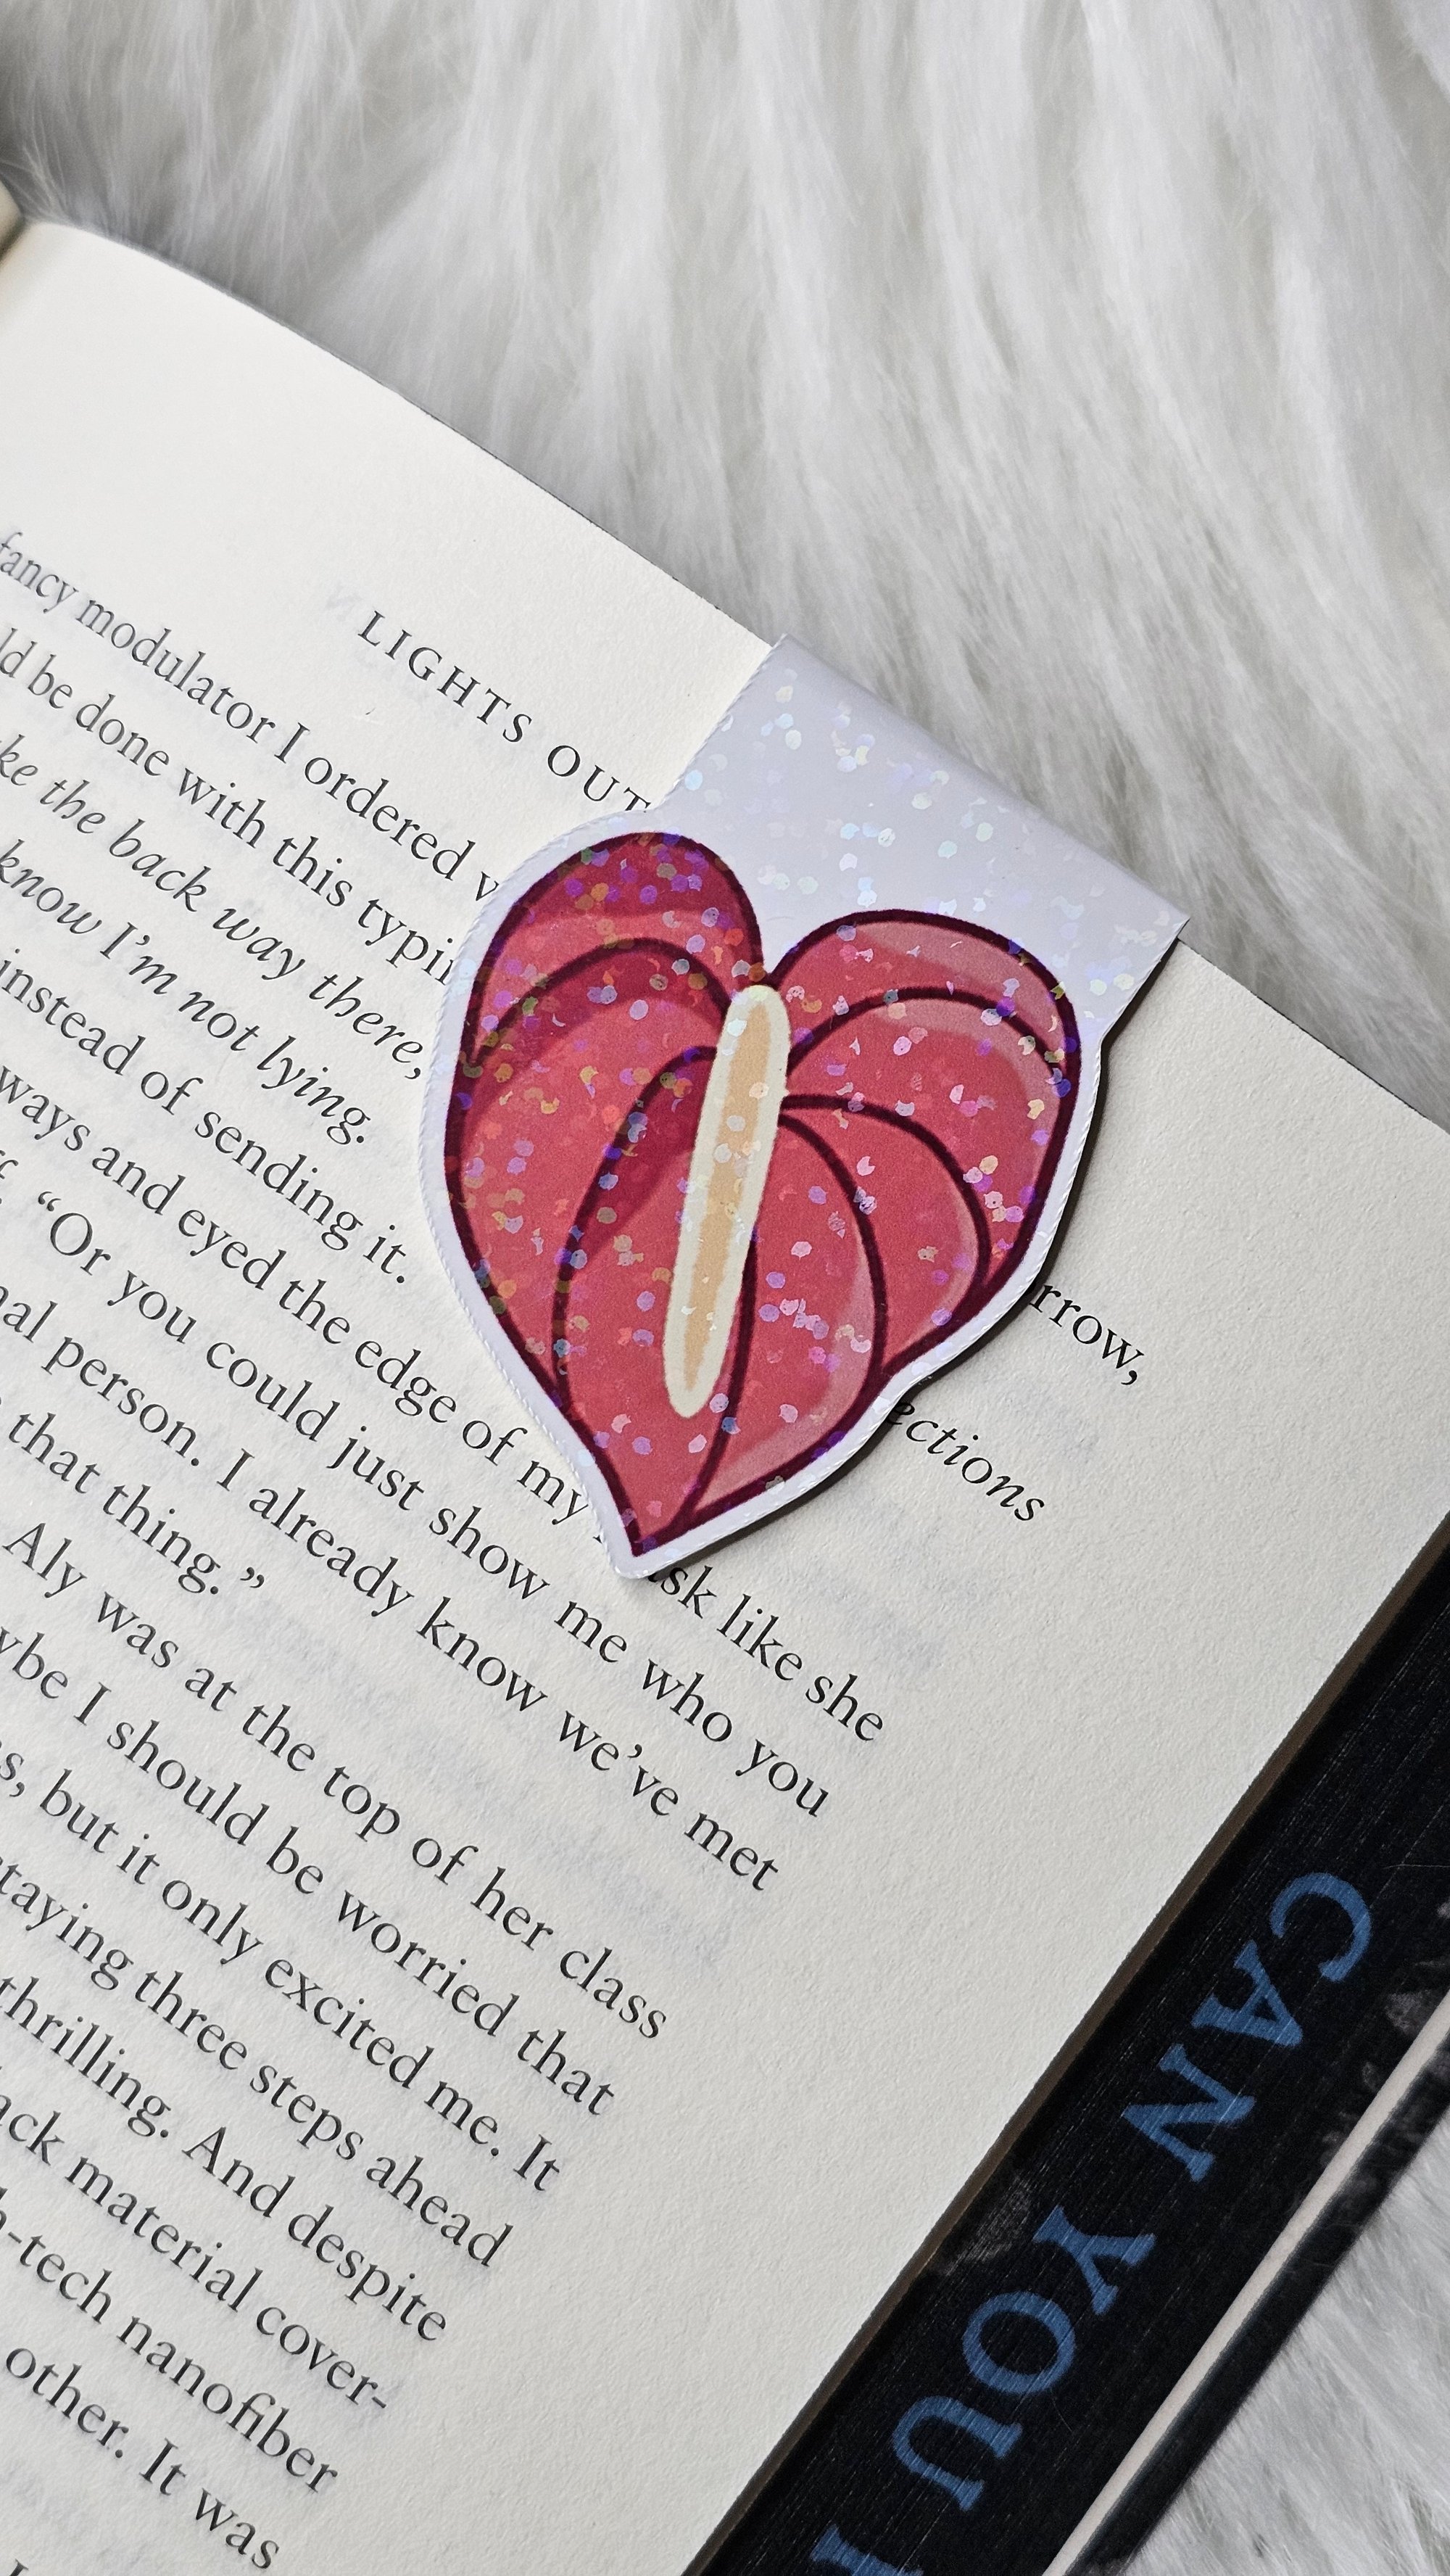 LIGHTS OUT
fancy modulator I ordered rrow,
ld be done with this typi
ke the back way there, ections
know I'm not lying.
instead of sending it.
ways and eyed the edge of my sk like she
“Or you could just show me who you
nal person. I already know we've met
that thing.”
Aly was at the top of her class
ybe I should be worried that
s, but it only excited me. It
taying three steps ahead
thrilling. And despite
ack material cover-
h-tech nanofiber
other. It was
CAN YOU